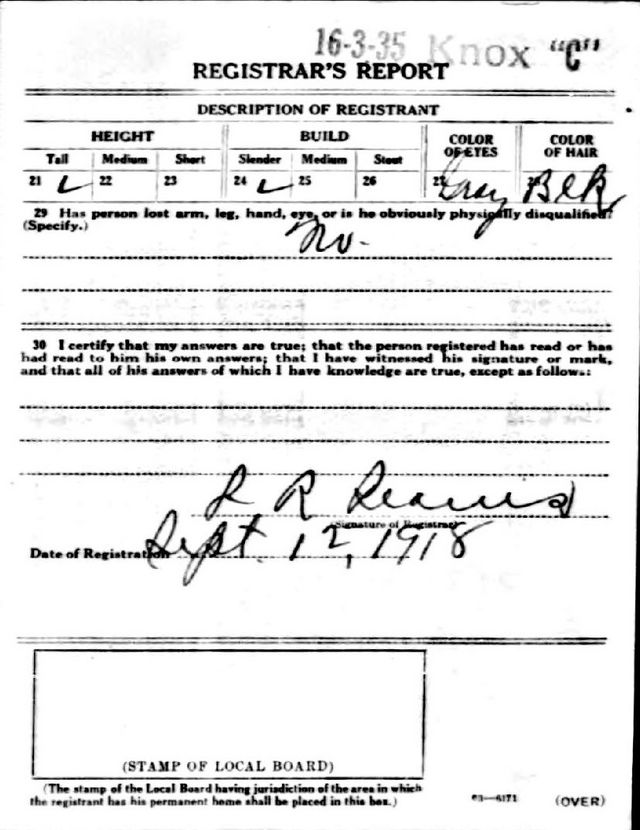 16-3-35 Knox "C"
REGISTRAR'S REPORT
DESCRIPTION OF REGISTRANT
HEIGHT BUILD COLOR OF EYES COLOR OF HAIR
Tall Medium Short Slender Medium Stout
21 ✓ 22 23 24 ✓ 25 26 27 Gray Blk
29 Has person lost arm, leg, hand, eye, or is he obviously physically disqualified?
(Specify.)
No.
30 I certify that my answers are true; that the person registered has read or has
had read to him his own answers; that I have witnessed his signature or mark,
and that all of his answers of which I have knowledge are true, except as follows:
R R
(Signature of Registrar)
Date of Registration Sept. 12, 1918
(STAMP OF LOCAL BOARD)
(The stamp of the Local Board having jurisdiction of the area in which
the registrant has his permanent home shall be placed in this box.)
03—6171 (OVER)